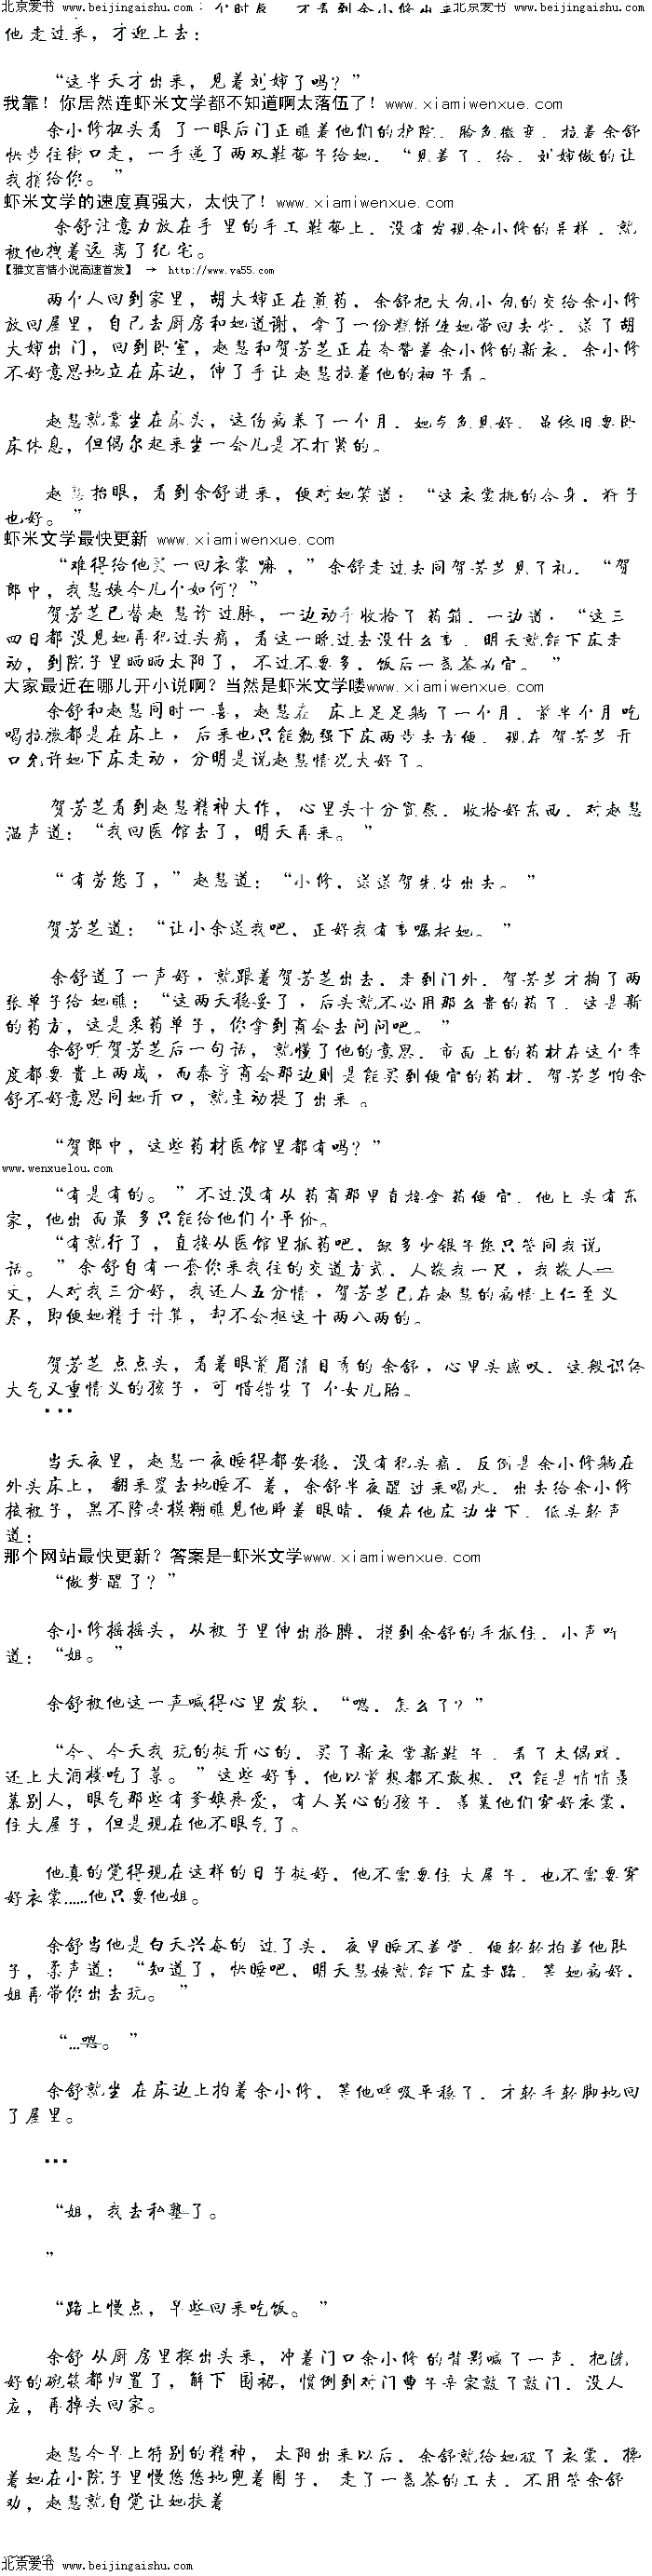 北京爱书 www.beijingaishu.com
北京爱书 www.beijingaishu.com
他走过来，才迎上去：
“这半天才出来，见着刘婶了吗？”
我靠！你居然连虾米文学都不知道啊太落伍了！www.xiamiwenxue.com
余小修扭头看了一眼后门正瞧着他们的护院，脸色微变，拉着余舒
快步往街口走，一手递了两双鞋垫子给她，“见着了，给，刘婶做的让
我捎给你。”
虾米文学的速度真强大，太快了！www.xiamiwenxue.com
余舒注意力放在手里的手工鞋垫上，没有发现余小修的异样，就
被他拽着远离了纪宅。
【雅文言情小说高速首发】 → http://www.ya55.com
两个人回到家里，胡大婶正在煎药，余舒把大包小包的交给余小修
放回屋里，自己去厨房和她道谢，拿了一份糕饼使她带回去尝，送了胡
大婶出门，回到卧室，赵慧和贺芳芝正在夸赞着余小修的新衣，余小修
不好意思地立在床边，伸了手让赵慧拉着他的袖子看。
赵慧就靠坐在床头，这伤病养了一个月，她气色见好，虽依旧要卧
床休息，但偶尔起来坐一会儿是不打紧的。
赵慧抬眼，看到余舒进来，便对她笑道：“这衣裳挑的合身，料子
也好。”
虾米文学最快更新 www.xiamiwenxue.com
“难得给他买一回衣裳嘛，”余舒走过去同贺芳芝见了礼，“贺
郎中，我慧姨今儿个如何？”
贺芳芝已替赵慧诊过脉，一边动手收拾了药箱，一边道，“这三
四日都没见她再犯过头痛，看这一晚过去没什么事，明天就能下床走
动，到院子里晒晒太阳了，不过不要多，饭后一盏茶为宜。”
大家最近在哪儿开小说啊？当然是虾米文学喽www.xiamiwenxue.com
余舒和赵慧同时一喜，赵慧在床上足足躺了一个月，前半个月吃
喝拉撒都是在床上，后来也只能勉强下床两步去方便，现在贺芳芝开
口允许她下床走动，分明是说赵慧情况大好了。
贺芳芝看到赵慧精神大作，心里头十分宽慰，收拾好东西，对赵慧
温声道：“我回医馆去了，明天再来。”
“有劳您了，”赵慧道：“小修，送送贺先生出去。”
贺芳芝道：“让小余送我吧，正好我有事嘱托她。”
余舒道了一声好，就跟着贺芳芝出去，走到门外，贺芳芝才掏了两
张单子给她瞧：“这两天稳妥了，后头就不必用那么贵的药了，这是新
的药方，这是采药单子，你拿到商会去问问吧。”
余舒听贺芳芝后一句话，就懂了他的意思，市面上的药材在这个季
度都要贵上两成，而泰亨商会那边则是能买到便宜的药材，贺芳芝怕余
舒不好意思同她开口，就主动提了出来。
“贺郎中，这些药材医馆里都有吗？”
www.wenxuelou.com
“有是有的。”不过没有从药商那里直接拿药便宜，他上头有东
家，他出面最多只能给他们个平价。
“有就行了，直接从医馆里抓药吧，缺多少银子您只管同我说
话。”余舒自有一套你来我往的交道方式，人敬我一尺，我敬人一
丈，人对我三分好，我还人五分情，贺芳芝已在赵慧的病情上仁至义
尽，即便她精于计算，却不会抠这十两八两的。
贺芳芝点点头，看着眼前眉清目秀的余舒，心里头感叹，这般识体
大气又重情义的孩子，可惜错生了个女儿胎。
***
当天夜里，赵慧一夜睡得都安稳，没有犯头痛，反倒是余小修躺在
外头床上，翻来覆去地睡不着，余舒半夜醒过来喝水，出去给余小修
掖被子，黑不隆冬模糊瞧见他睁着眼睛，便在他床边坐下，低头轻声
道：
那个网站最快更新？答案是-虾米文学www.xiamiwenxue.com
“做梦醒了？”
余小修摇摇头，从被子里伸出胳膊，摸到余舒的手抓住，小声听
道：“姐。”
余舒被他这一声喊得心里发软，“嗯，怎么了？”
“今、今天我玩的挺开心的，买了新衣裳新鞋子，看了木偶戏，
还上大酒楼吃了菜。”这些好事，他以前想都不敢想，只能是悄悄羡
慕别人，眼气那些有爹娘疼爱，有人关心的孩子，羡慕他们穿好衣裳，
住大屋子，但是现在他不眼气了。
他真的觉得现在这样的日子挺好，他不需要住大屋子，也不需要穿
好衣裳......他只要他姐。
余舒当他是白天兴奋的过了头，夜里睡不着觉，便轻轻拍着他肚
子，柔声道：“知道了，快睡吧，明天慧姨就能下床走路，等她病好，
姐再带你出去玩。”
“...嗯。”
余舒就坐在床边上拍着余小修，等他呼吸平稳了，才轻手轻脚地回
了屋里。
***
“姐，我去私塾了。
”
“路上慢点，早些回来吃饭。”
余舒从厨房里探出头来，冲着门口余小修的背影喊了一声，把洗
好的碗筷都归置了，解下围裙，惯例到对门曹子辛家敲了敲门，没人
应，再掉头回家。
赵慧今早上特别的精神，太阳出来以后，余舒就给她披了衣裳，搀
着她在小院子里慢悠悠地兜着圈子，走了一盏茶的工夫，不用等余舒
劝，赵慧就自觉让她扶着
北京爱书 www.beijingaishu.com